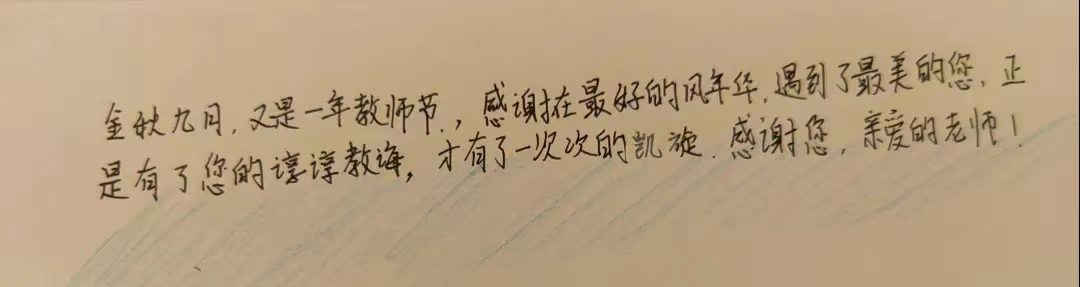 金秋九月,又是一年教师节.,感谢在最好的风年华,遇到了最美的您,正
是有了您的谆谆教诲,才有了一次次的凯旋.感谢您,亲爱的老师!